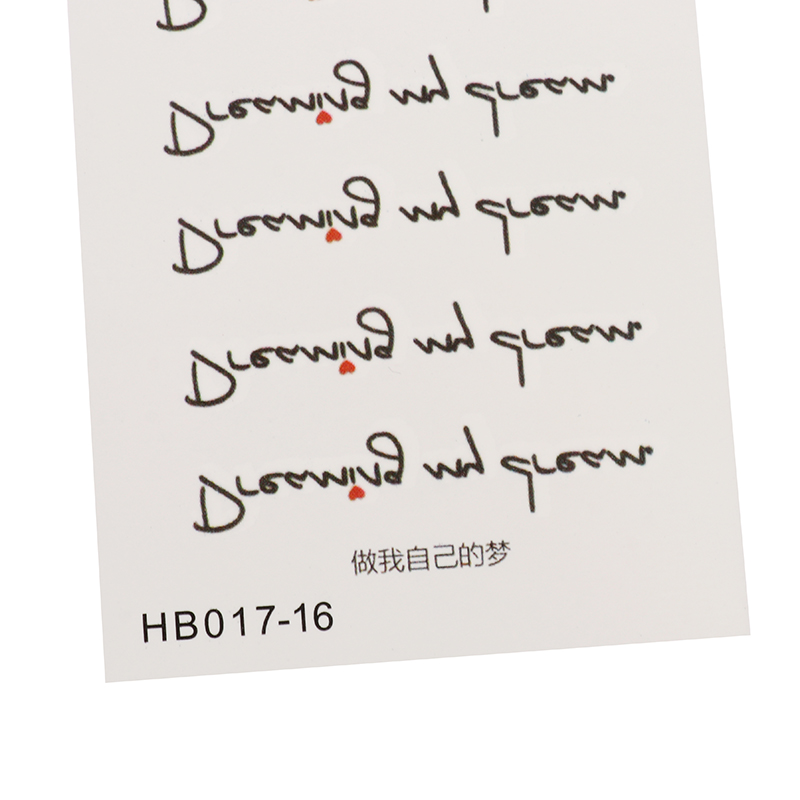 Dreaming my dream.
Dreaming my dream.
Dreaming my dream.
Dreaming my dream.
做我自己的梦
HB017-16